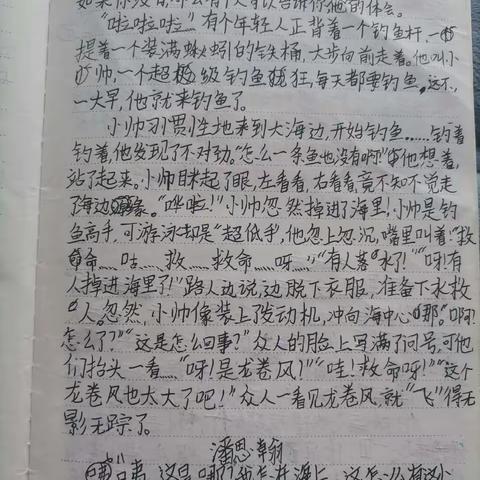 “啦啦啦……”有个年轻人正背着一个钓鱼杆,一
提着一个装满蚯蚓的铁桶,大步向前走着。他叫小
帅,一个超级钓鱼狂,每天都要钓鱼。这不,
一大早,他就来钓鱼了。
小帅习惯性地来到大海边,开始钓鱼……钓着
钓着,他发现了不对劲。“怎么一条鱼也没有啊”他想着,
站了起来。小帅眯起了眼,左看看,右看看,竟不知不觉走
了海边缘。“哗啦!”小帅忽然掉进了海里!小帅是钓
鱼高手,可游泳却是“超低手”,他忽上忽沉,嘴里叫着:“救
命……咕……救……救命……呀……”“有人落水了!”“呀!有
人掉进海里了!”路人边说,边脱下衣服,准备下水救
人。忽然,小帅像装上了发动机,冲向海中心那。“啊?
怎么了?”“这是怎么回事?”众人的脸上写满了问号,可他
们抬头一看……“呀!是龙卷风!”“哇!救命呀!”“这个
龙卷风也太大了吧!”众人一看见龙卷风,就“飞”得无
影无踪了。
潘思翰